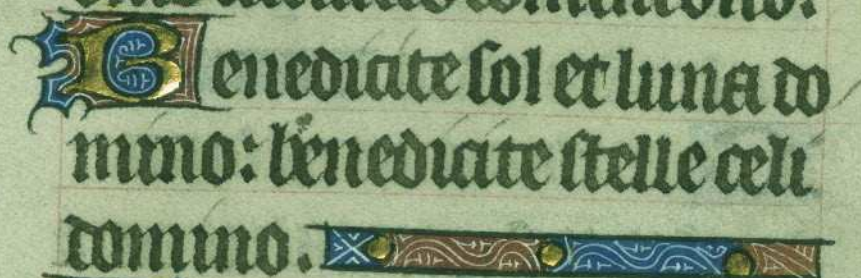 Benedicite sol et luna do
mino: benedicite stelle celi
domino.